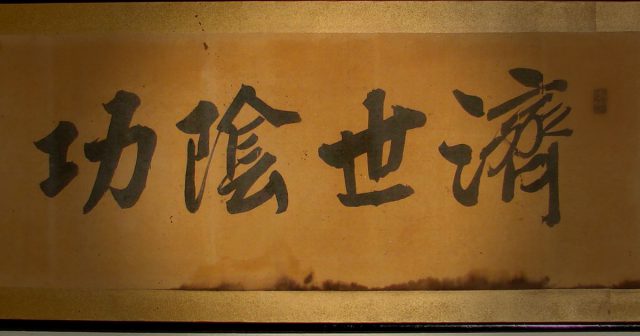 濟世陰功